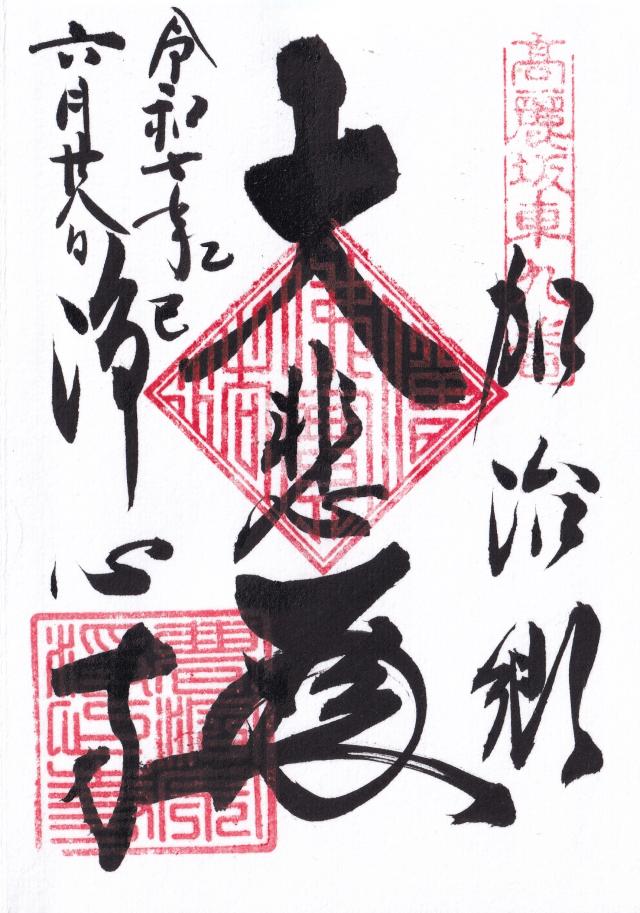 高麗坂東九番
加治郷
大悲殿
令和七年乙巳
六月廿八日
浄心寺